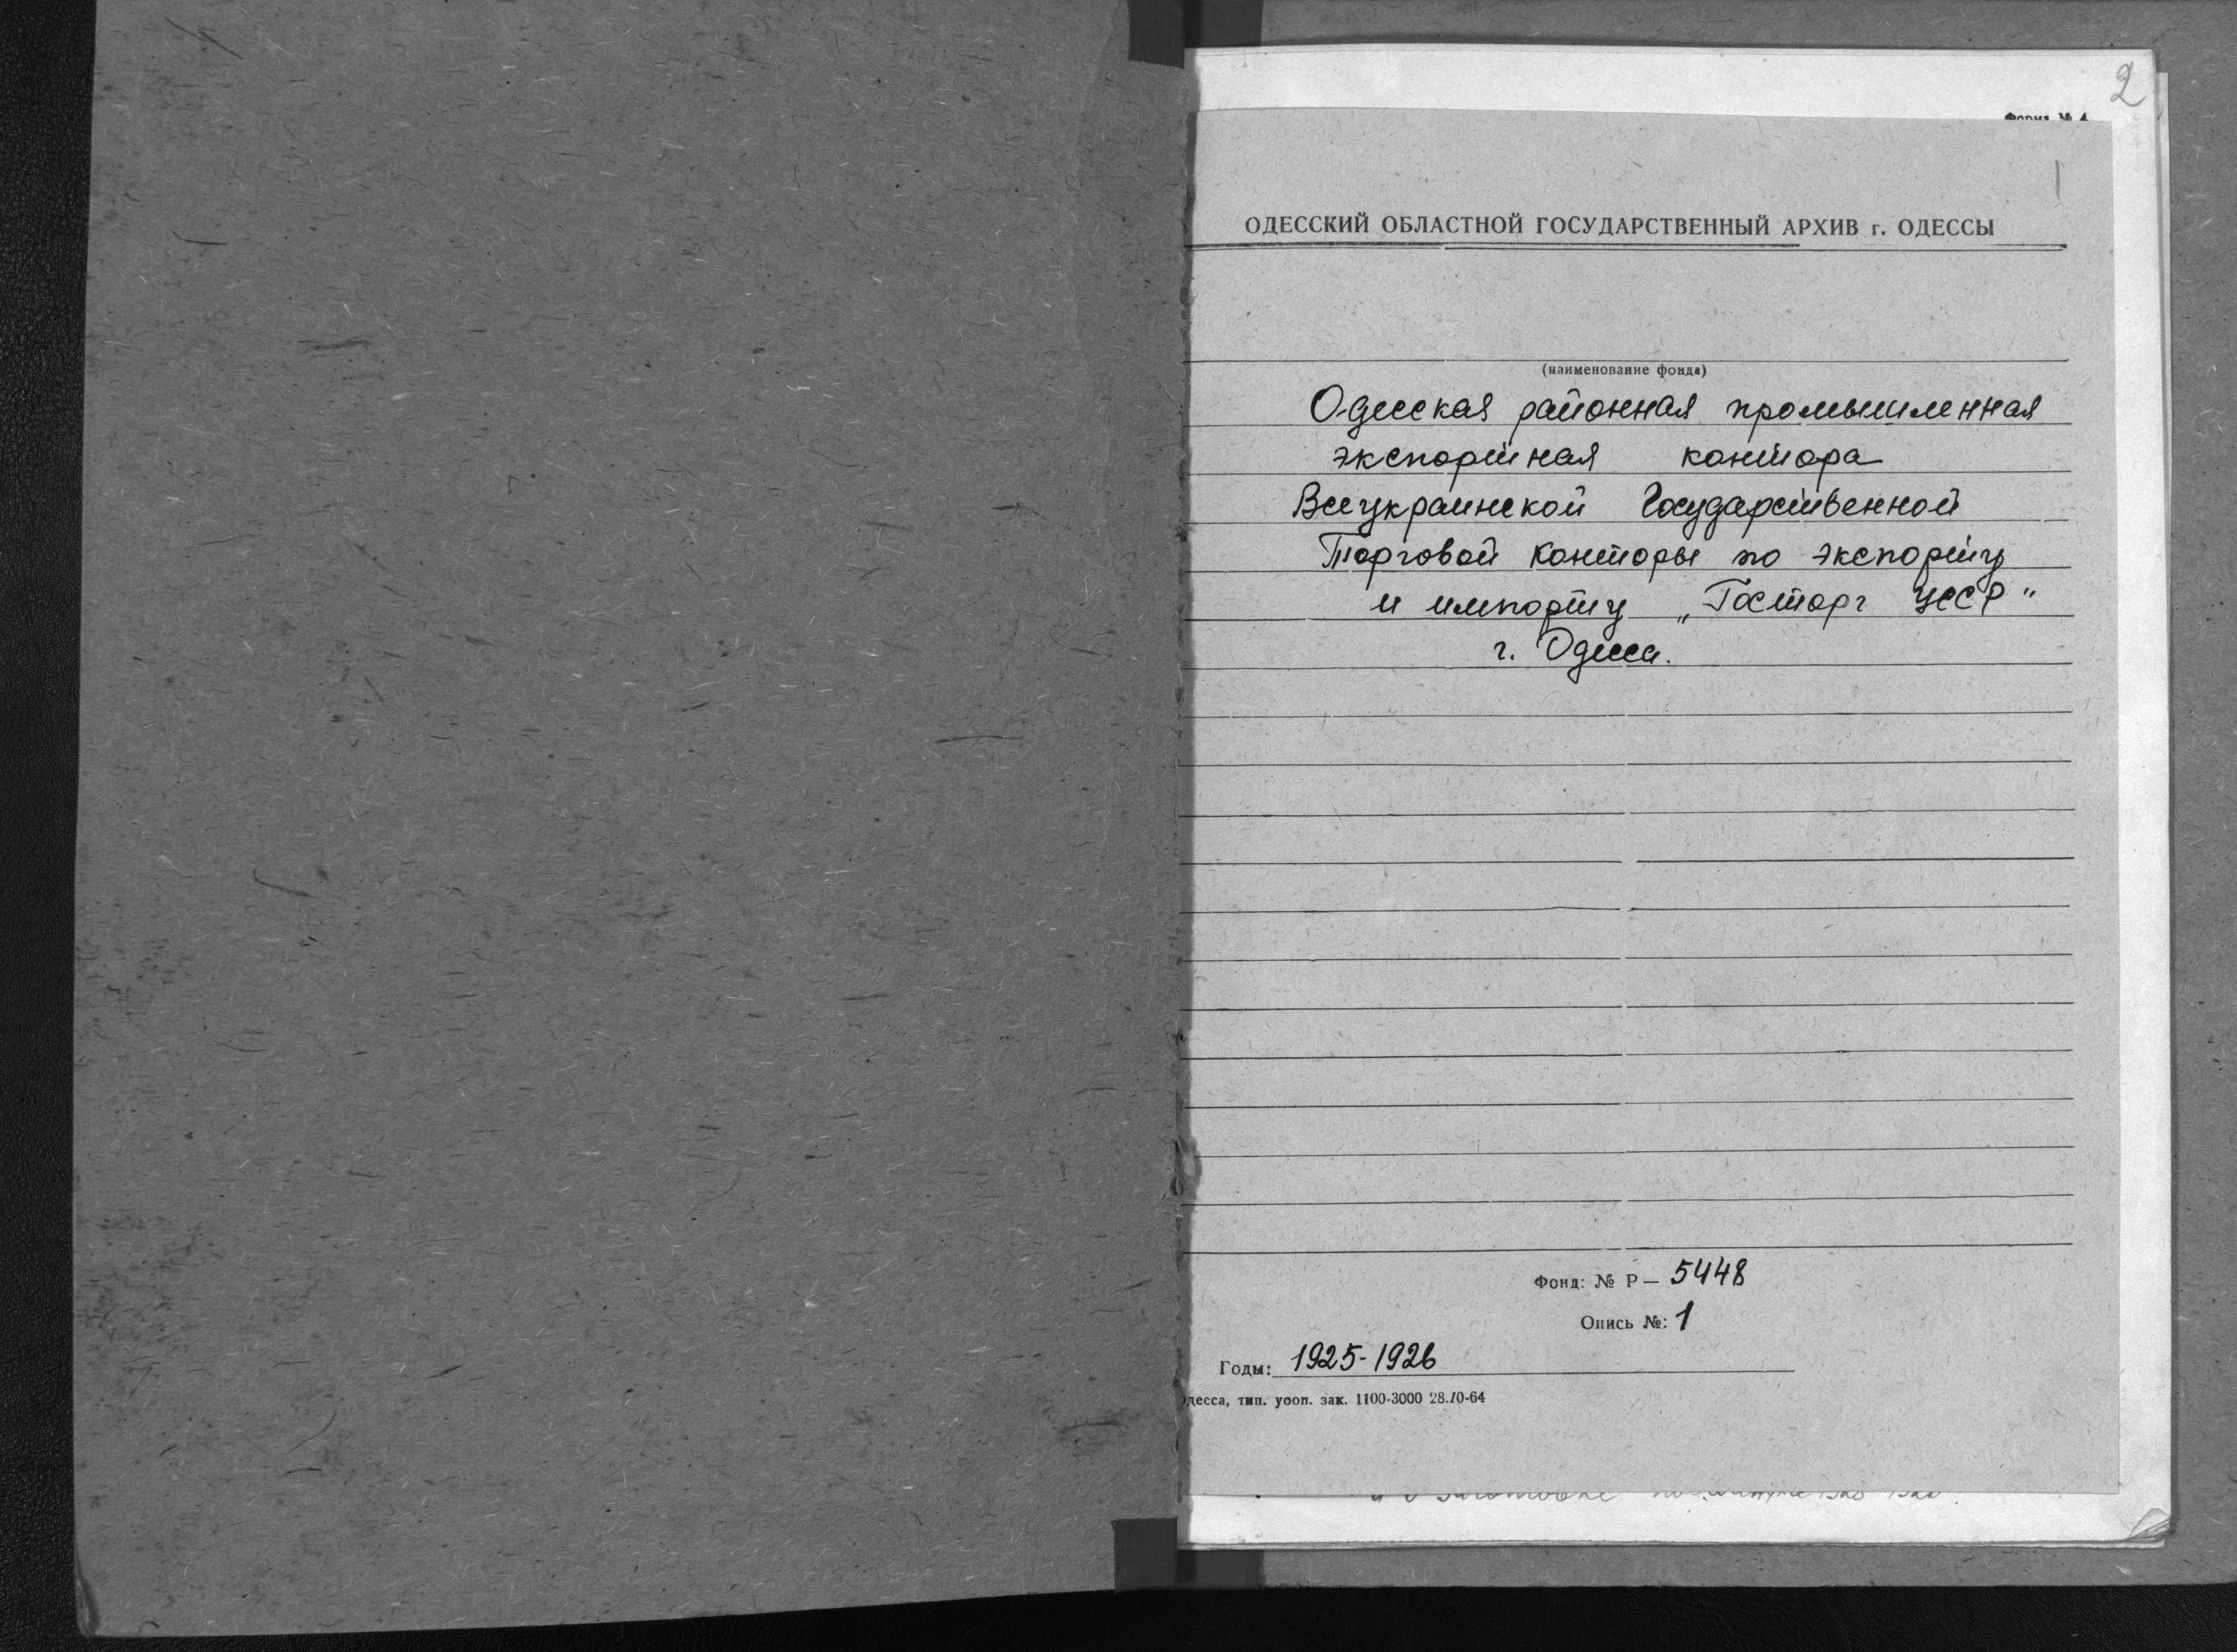 2
Форма № 4
1
ОДЕССКИЙ ОБЛАСТНОЙ ГОСУДАРСТВЕННЫЙ АРХИВ г. ОДЕССЫ
(наименование фонда)
Одесская районная промышленная
экспортная контора
Всеукраинской Государственной
Торговой Конторы по экспорту
и импорту „Госторг УССР"
г. Одесса.
Фонд: № Р — 5448
Опись №: 1
Годы: 1925-1926
десса, тип. уооп. зак. 1100-3000 28.10-64